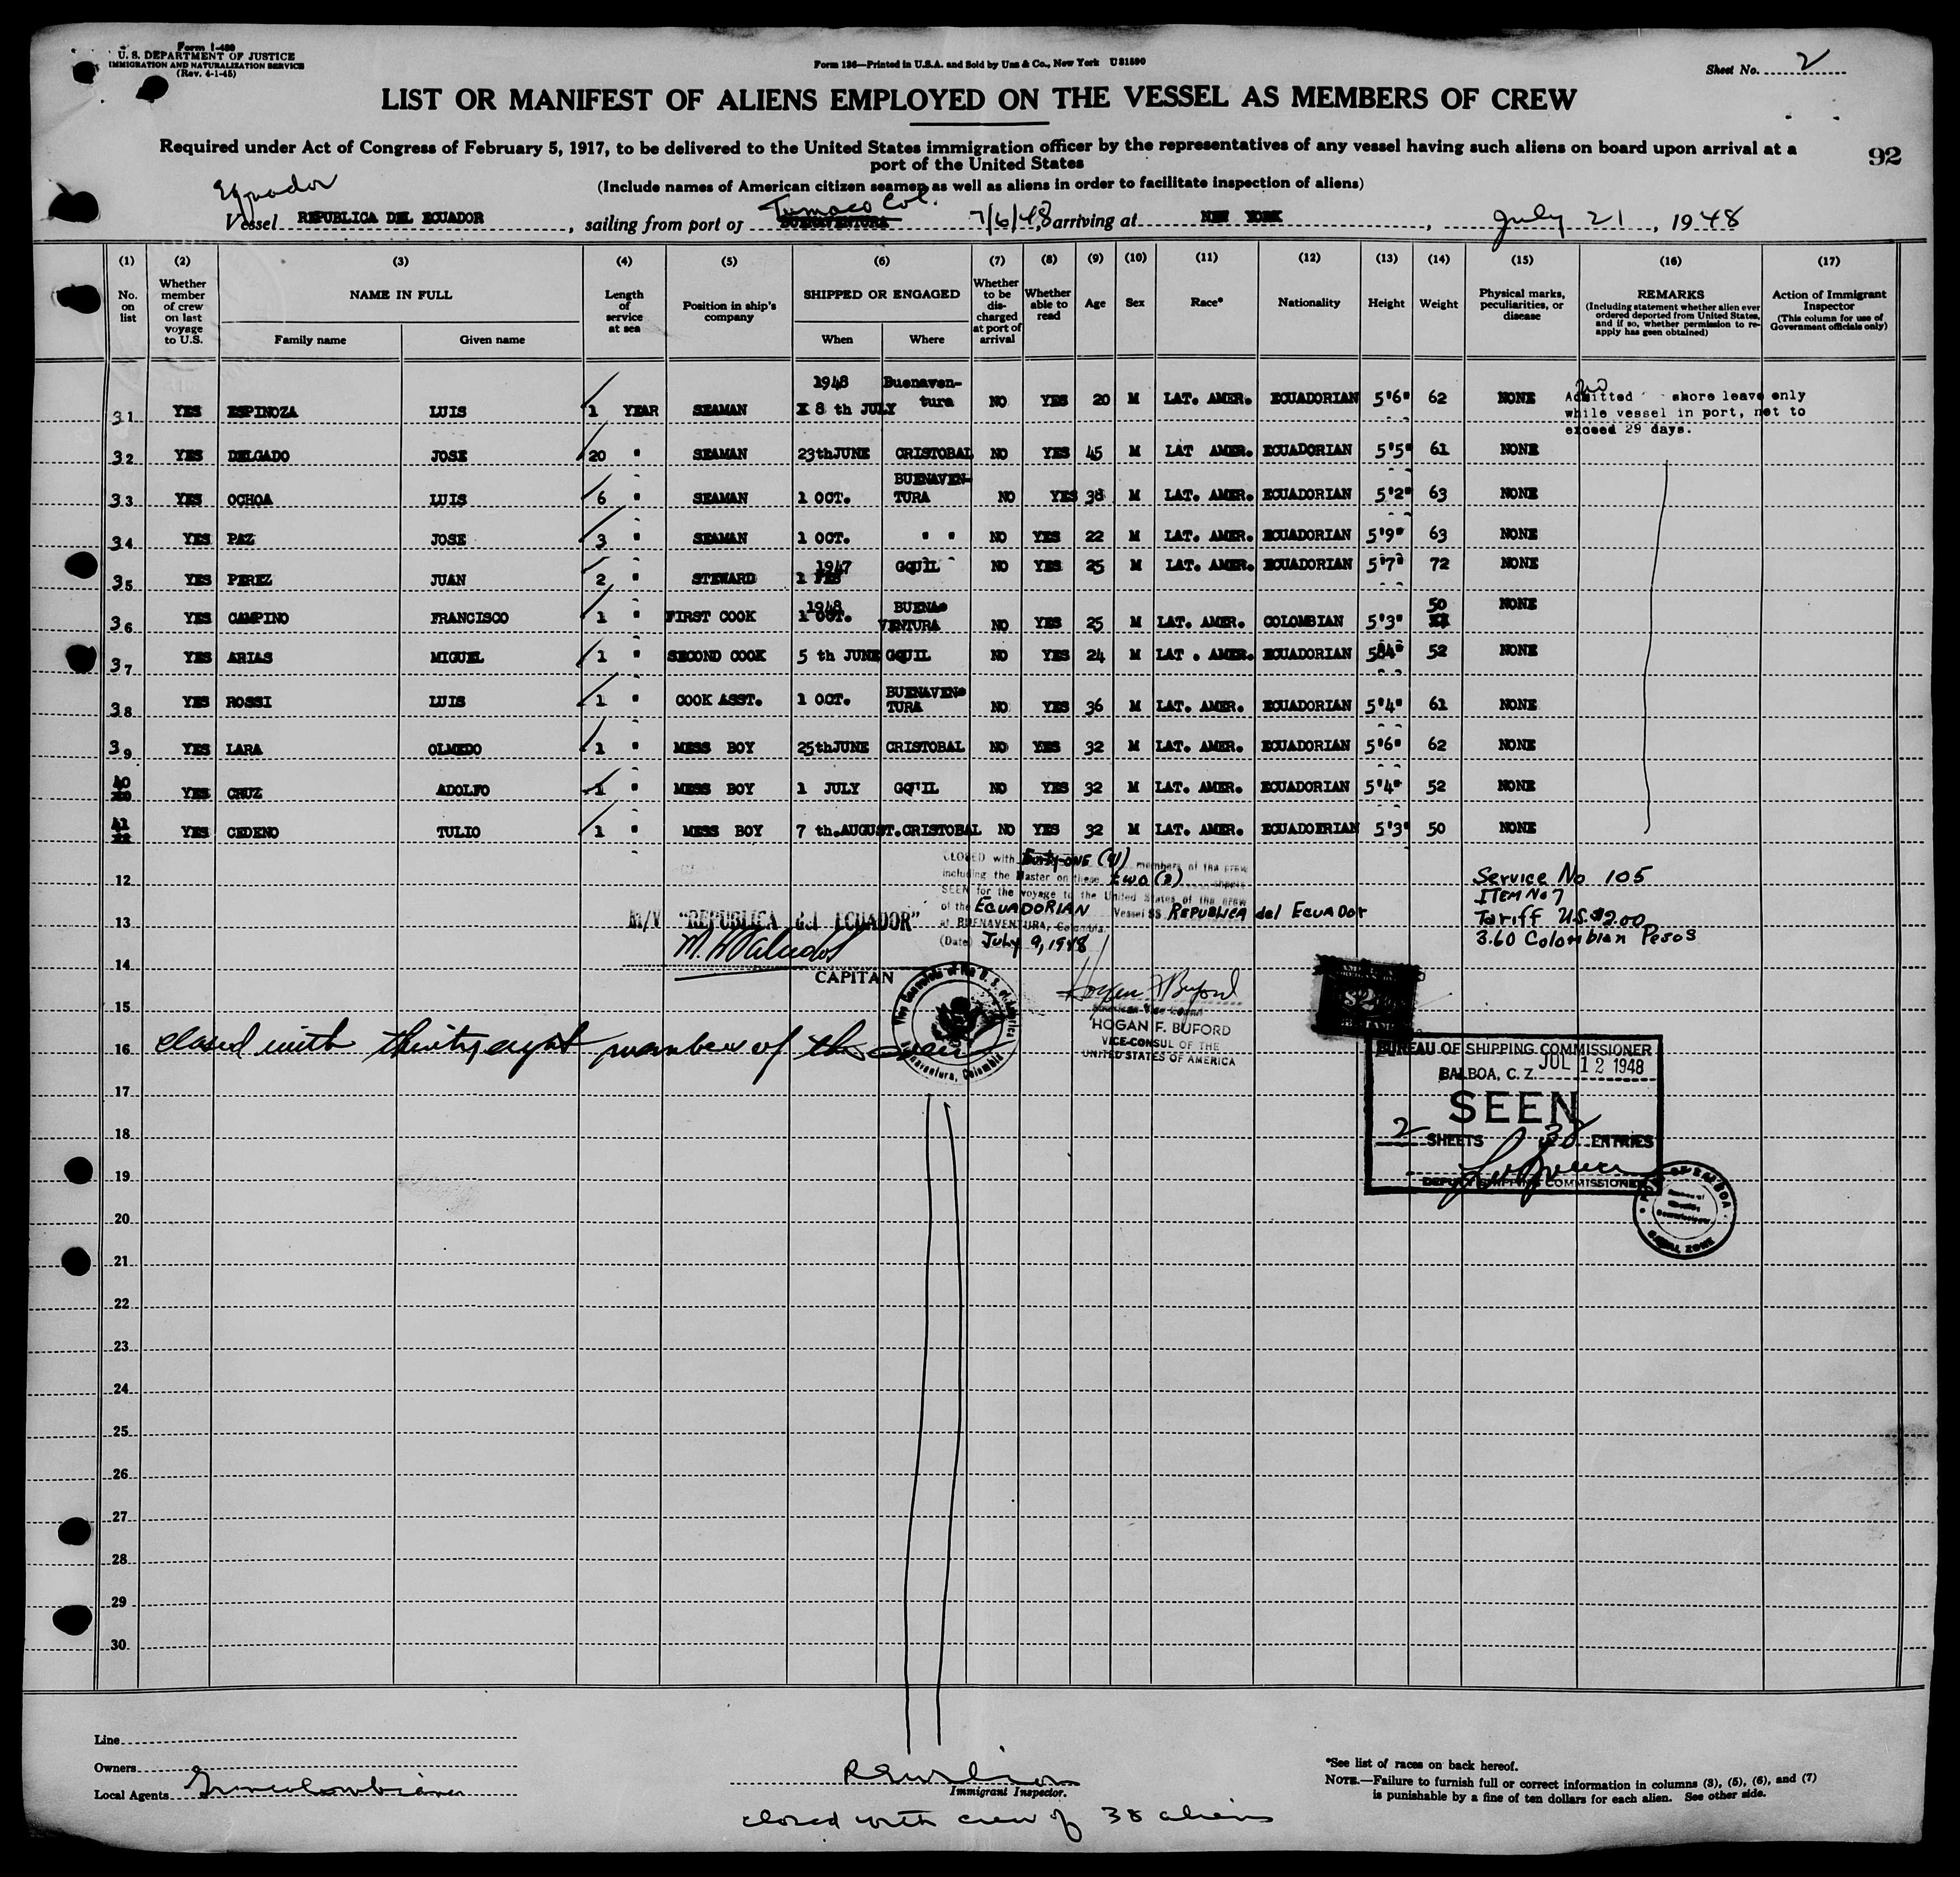 Form I-480
U. S. DEPARTMENT OF JUSTICE
IMMIGRATION AND NATURALIZATION SERVICE
(Rev. 4-1-45)
Form 136—Printed in U.S.A. and Sold by Unz & Co., New York U 31590
Sheet No. 2
LIST OR MANIFEST OF ALIENS EMPLOYED ON THE VESSEL AS MEMBERS OF CREW
Required under Act of Congress of February 5, 1917, to be delivered to the United States immigration officer by the representatives of any vessel having such aliens on board upon arrival at a
port of the United States
92
(Include names of American citizen seamen as well as aliens in order to facilitate inspection of aliens)
Equador
Tumaco Col.
Vessel REPUBLICA DEL ECUADOR, sailing from port of BUENAVENTURA 7/6/48, arriving at NEW YORK, July 21, 1948
(1) (2) (3) (4) (5) (6) (7) (8) (9) (10) (11) (12) (13) (14) (15) (16) (17)
No. on list
Whether member of crew on last voyage to U.S.
NAME IN FULL
Family name
Given name
Length of service at sea
Position in ship's company
SHIPPED OR ENGAGED
When
Where
Whether to be discharged at port of arrival
Whether able to read
Age
Sex
Race*
Nationality
Height
Weight
Physical marks, peculiarities, or disease
REMARKS
(Including statement whether alien ever ordered deported from United States, and if so, whether permission to reapply has geen obtained)
Action of Immigrant Inspector
(This column for use of Government officials only)
31 YES ESPINOZA LUIS 1 YEAR SEAMAN 1948 X 8 th JULY Buenaventura NO YES 20 M LAT. AMER. ECUADORIAN 5'6" 62 NONE
Admitted shore leave only
while vessel in port, not to
exceed 29 days.
32 YES DELGADO JOSE 20 " SEAMAN 23thJUNE CRISTOBAL NO YES 45 M LAT AMER. ECUADORIAN 5'5" 61 NONE
33 YES OCHOA LUIS 6 " SEAMAN 1 OCT. BUENAVENTURA NO YES 38 M LAT. AMER. ECUADORIAN 5'2" 63 NONE
34 YES PAZ JOSE 3 " SEAMAN 1 OCT. " " NO YES 22 M LAT. AMER. ECUADORIAN 5'9" 63 NONE
35 YES PEREZ JUAN 2 " STEWARD 1947 1 FEB GQUIL NO YES 25 M LAT. AMER. ECUADORIAN 5'7" 72 NONE
36 YES CAMPINO FRANCISCO 1 " FIRST COOK 1948 1 OCT. BUENAVENTURA NO YES 25 M LAT. AMER. COLOMBIAN 5'3" 50 NONE
37 YES ARIAS MIGUEL 1 " SECOND COOK 5 th JUNE GQUIL NO YES 24 M LAT . AMER. ECUADORIAN 584" 52 NONE
38 YES ROSSI LUIS 1 " COOK ASST. 1 OCT. BUENAVENTURA NO YES 36 M LAT. AMER. ECUADORIAN 5'4" 61 NONE
39 YES LARA OLMEDO 1 " MESS BOY 25thJUNE CRISTOBAL NO YES 32 M LAT. AMER. ECUADORIAN 5'6" 62 NONE
40 YES CRUZ ADOLFO 1 " MESS BOY 1 JULY GQ'IL NO YES 32 M LAT. AMER. ECUADORIAN 5'4" 52 NONE
41 YES CEDENO TULIO 1 " MESS BOY 7 th.AUGUST.CRISTOBAL NO YES 32 M LAT. AMER. ECUADOERIAN 5'3" 50 NONE
CLOSED with Forty-ONE (41) members of the crew
including the Master on these two (2) sheets
SEEN for the voyage to the United States of the crew
of the ECUADORIAN Vessel SS REPUBLICA del ECUADOR
at BUENAVENTURA, Colombia.
(Date) July 9, 1948
Service No 105
ITEM No 7
Tariff U.S.$2.00
3.60 Colombian Pesos
M/V "REPUBLICA del ECUADOR"
CAPITAN
Vice Consulate of the U. S. of America
Buenaventura, Colombia
Hogan F Buford
American Vice Consul
HOGAN F. BUFORD
VICE-CONSUL OF THE
UNITED STATES OF AMERICA
$2
closed with thirty eight members of the crew
BUREAU OF SHIPPING COMMISSIONER
BALBOA, C. Z. JUL 12 1948
SEEN
2 SHEETS 38 ENTRIES
DEPUTY SHIPPING COMMISSIONER
PORT OF BALBOA
CANAL ZONE
12
13
14
15
16
17
18
19
20
21
22
23
24
25
26
27
28
29
30
Line
Owners
Local Agents Grancolombiana
Immigrant Inspector.
closed with crew of 38 aliens
*See list of races on back hereof.
NOTE.—Failure to furnish full or correct information in columns (3), (5), (6), and (7)
is punishable by a fine of ten dollars for each alien. See other side.